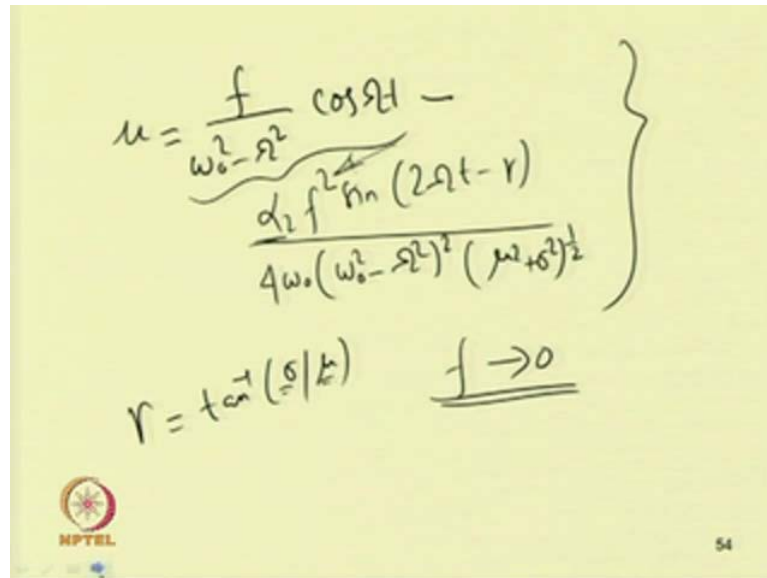 u = f / (ω₀² - Ω²) cos Ωt -
α₂ f² sin (2Ωt - γ) / 4ω₀(ω₀² - Ω²)² (μ² + σ²)^½ }
γ = tan⁻¹ (σ | μ)
f → 0
NPTEL
54